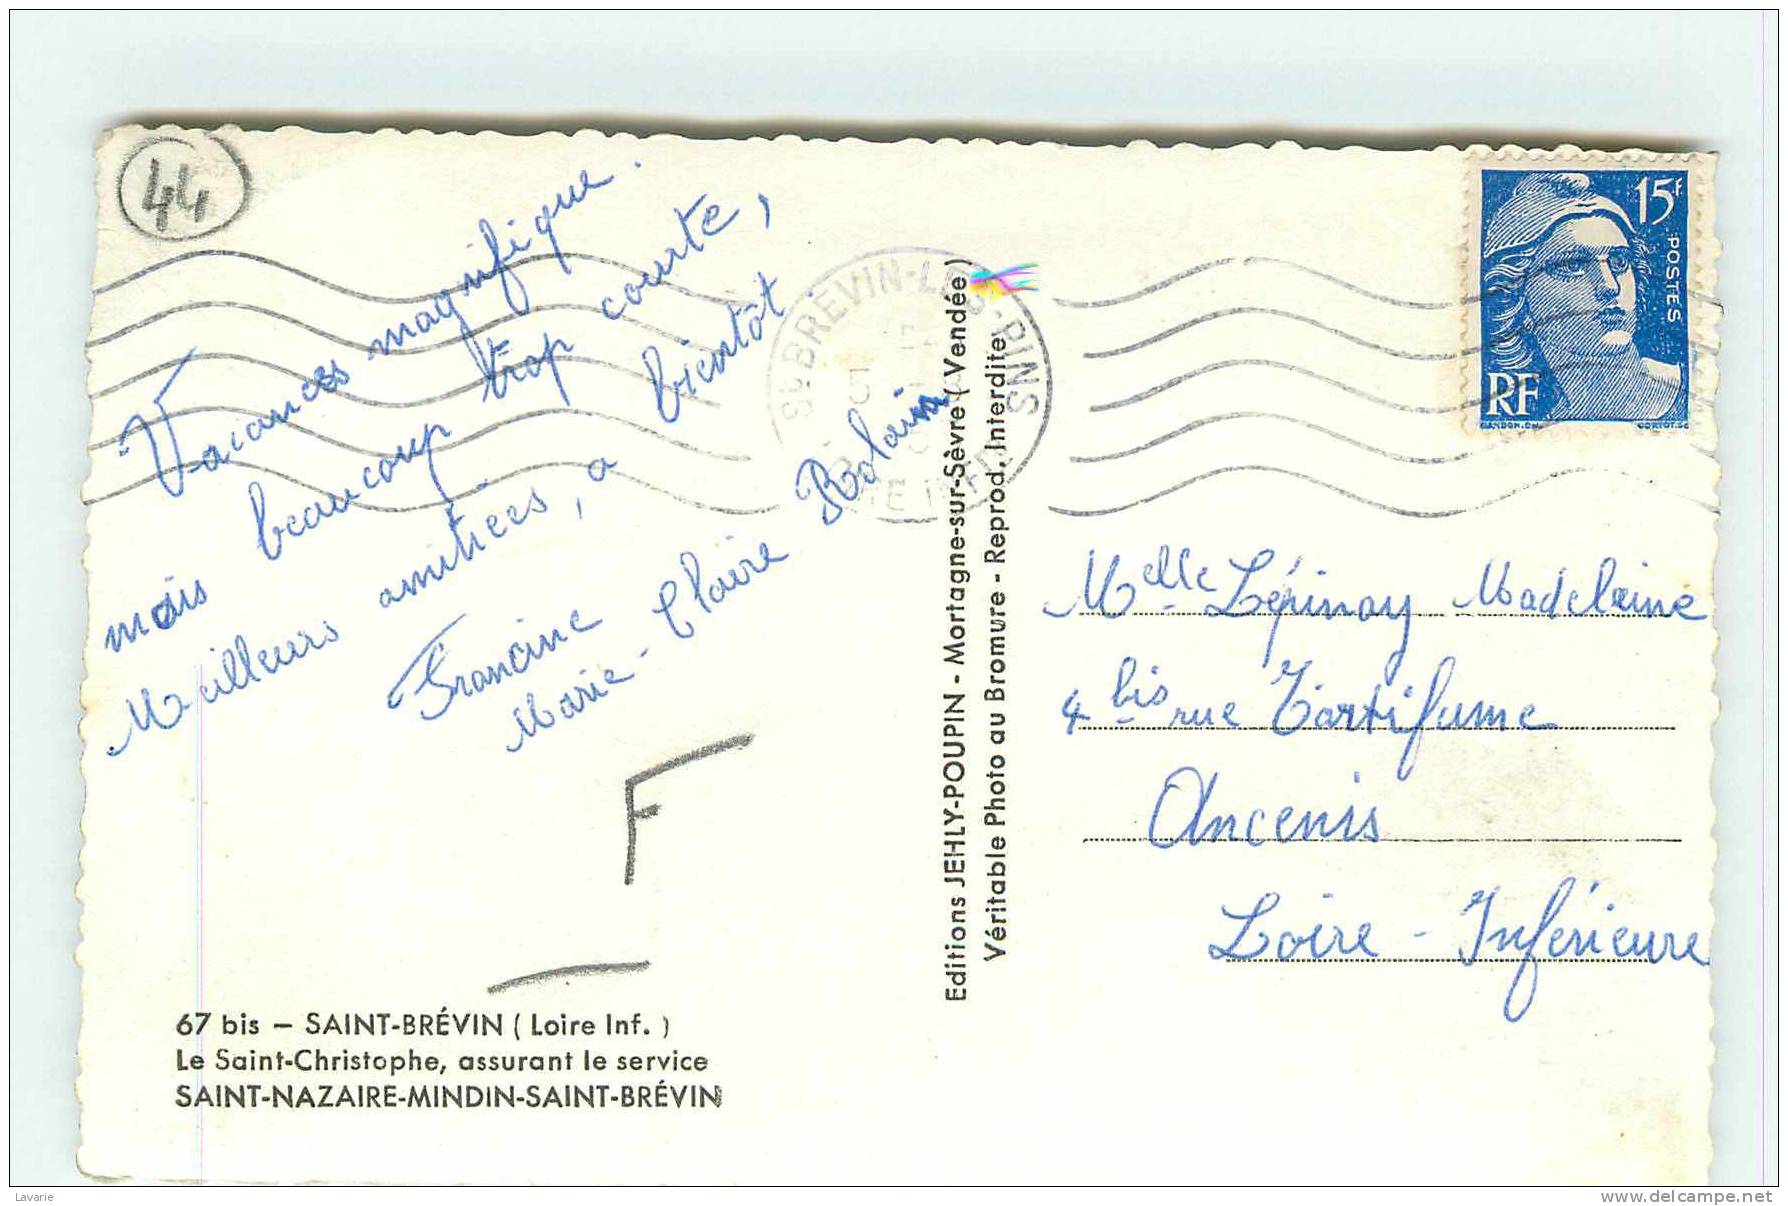 44
Vacances magnifique.
mais beaucoup trop courte,
Meilleurs amitiées, a bientôt
Francine
Marie-Claire Rolain
F
67 bis – SAINT-BRÉVIN ( Loire Inf. )
Le Saint-Christophe, assurant le service
SAINT-NAZAIRE-MINDIN-SAINT-BRÉVIN
Editions JEHLY-POUPIN - Mortagne-sur-Sèvre ( Vendée )
Véritable Photo au Bromure - Reprod. Interdite
ST BREVIN-LES-PINS
15F
POSTES
RF
GANDON.DEL
CORTOT.SC
Melle Lépinay Madelaine
4 bis rue Tartifume
Ancenis
Loire - Inférieure
Lavarie
www.delcampe.net